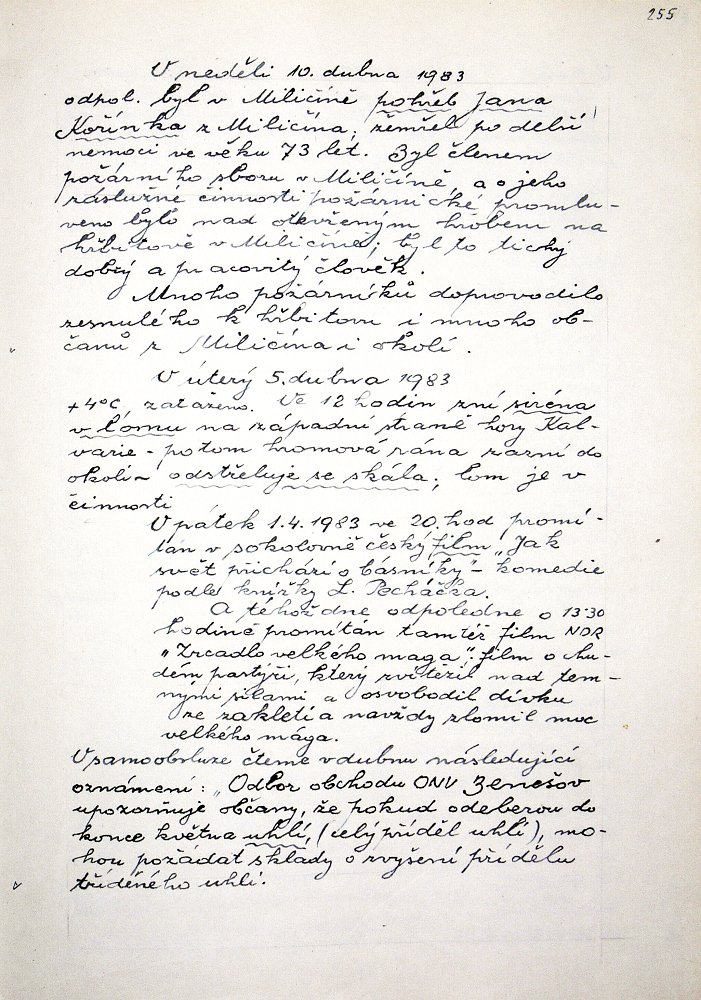 255
V neděli 10. dubna 1983
odpol. byl v Miličíně pohřeb Jana
Kořínka z Miličína, zemřel po delší
nemoci ve věku 73 let. Byl členem
požárního sboru v Miličíně, a o jeho
záslužné činnosti požárnické promlu-
veno bylo nad otevřeným hrobem na
hřbitově v Miličíně; byl to tichý
dobrý a pracovitý člověk.
Mnoho požárníků doprovodilo
zesnulého k hřbitovu i mnoho ob-
čanů z Miličína i okolí.
V úterý 5. dubna 1983
+4°C zataženo. Ve 12 hodin zní siréna
v lomu na západní straně hory Kal-
varie - potom hromová rána zazní do
okolí - odstřeluje se skála; lom je v
činnosti
V pátek 1.4.1983 ve 20. hod promí-
tán v sokolovně český film „Jak
svět přichází o básníky" - komedie
podle knížky L. Pecháčka.
A téhož dne odpoledne o 13·30
hodině promítán tamtéž film NDR
„Zrcadlo velkého maga". film o chu-
dém pastýři, který zvítězil nad tem-
nými silami a osvobodil dívku
ze zakletí a navždy zlomil moc
velkého mága.
V samoobsluze čteme v dubnu následující
oznámení: „Odbor obchodu ONV Benešov
upozorňuje občany, že pokud odeberou do
konce května uhlí, (celý příděl uhlí), mo-
hou požádat sklady o zvýšení přídělu
tříděného uhlí.